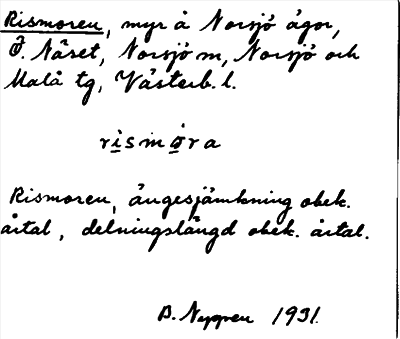 Rismoren, myr å Norsjö ägor,
Ö. Näset, Norsjö sn, Norsjö och
Malå tg, Västerb. l.
rismóra
Rismoren, ängesjämkning obek.
årtal, delningslängd obek. årtal.
B. Nygren 1931.